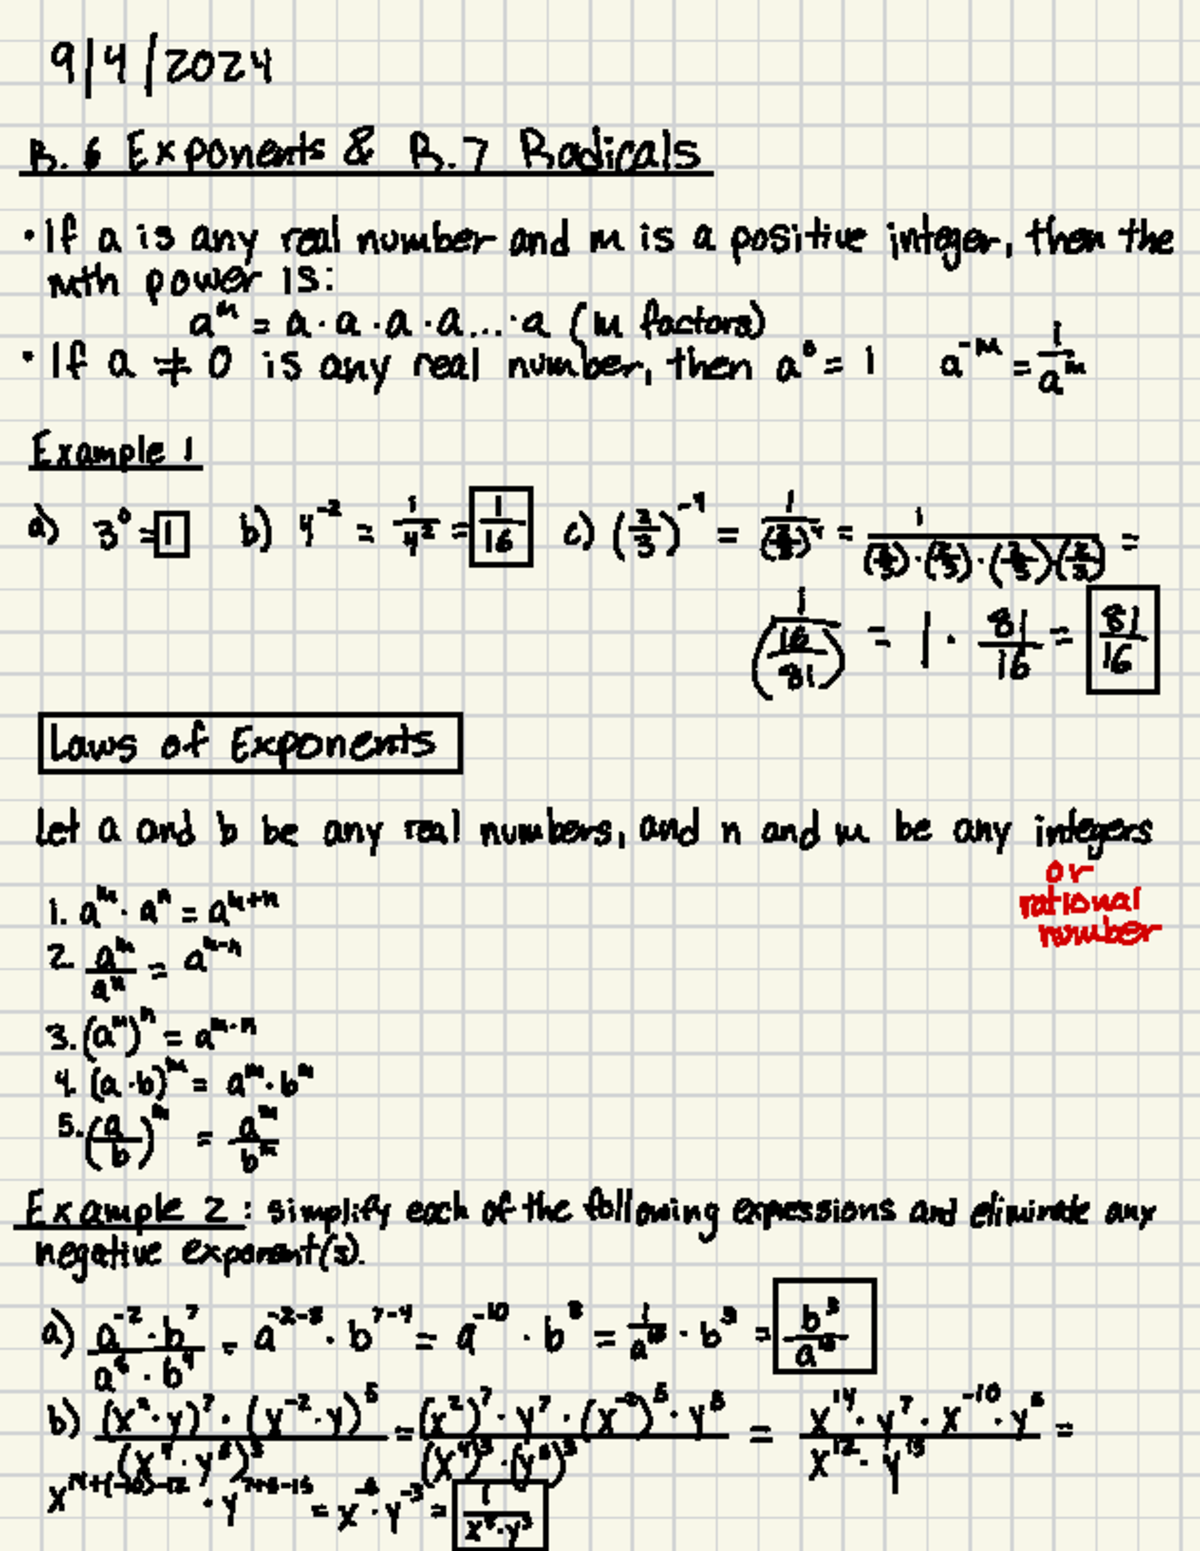 9/4/2024
R.6 Exponents & R.7 Radicals
• If a is any real number and m is a positive integer, then the
mth power is:
a^m = a · a · a · a ... · a (m factors)
• If a ≠ 0 is any real number, then a^0 = 1 a^-m = 1/a^m
Example 1
a) 3^0 = 1 b) 4^-2 = 1/4^2 = 1/16 c) (2/3)^-4 = 1/(2/3)^4 = 1/((2/3)·(2/3)·(2/3)(2/3)) =
1/(16/81) = 1 · 81/16 = 81/16
Laws of Exponents
Let a and b be any real numbers, and n and m be any integers
or
rational
number
1. a^m · a^n = a^m+n
2. a^m/a^n = a^m-n
3. (a^m)^n = a^m·n
4. (a·b)^m = a^m · b^m
5. (a/b)^m = a^m/b^m
Example 2: simplify each of the following expressions and eliminate any
negative exponent(s).
a) (a^-2 · b^7)/(a^8 · b^4) = a^-2-8 · b^7-4 = a^-10 · b^3 = 1/a^10 · b^3 = b^3/a^10
b) ((x^2·y)^7 · (x^-2·y)^5)/((x^4·y^5)^3) = ((x^2)^7 · y^7 · (x^-2)^5 · y^5)/((x^4)^3 · (y^5)^3) = (x^14 · y^7 · x^-10 · y^5)/(x^12 · y^15) =
x^14+(-10)-12 · y^7+5-15 = x^-8 · y^-3 = 1/(x^8·y^3)